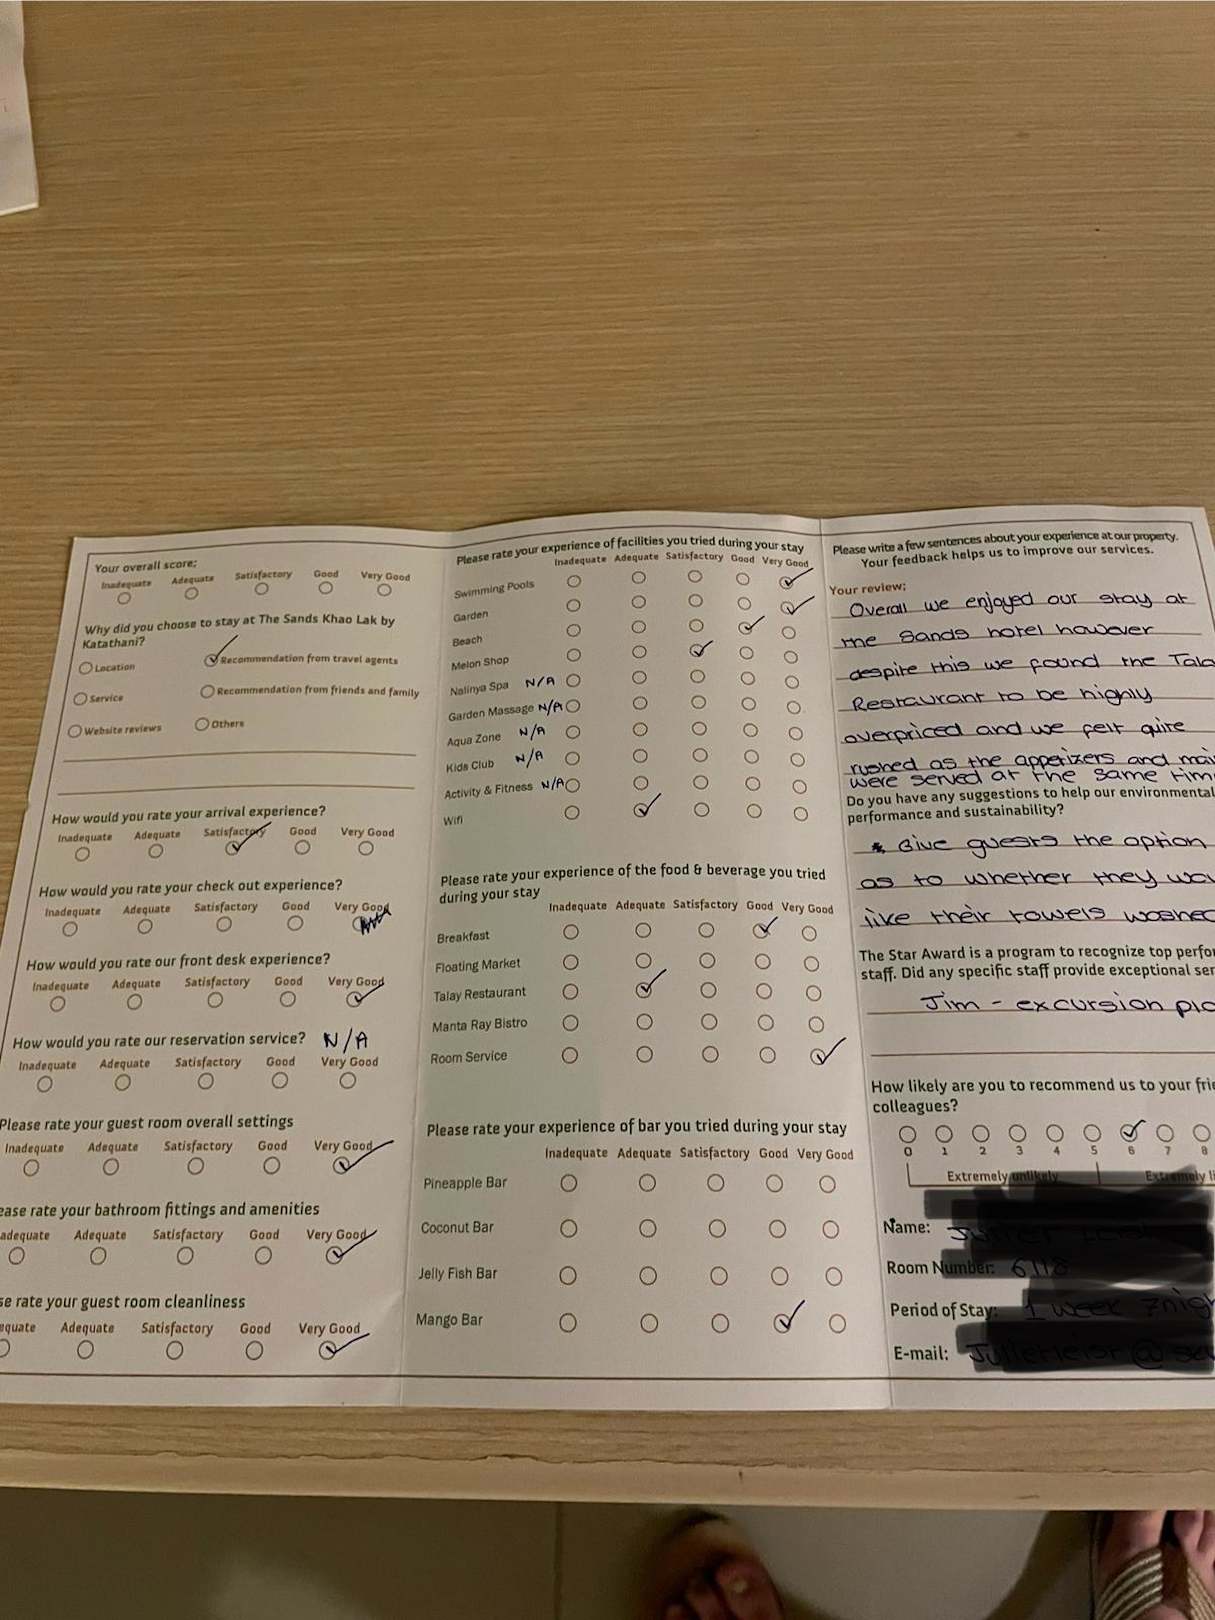 Your overall score:
Inadequate Adequate Satisfactory Good Very Good
Why did you choose to stay at The Sands Khao Lak by
Katathani?
Location Recommendation from travel agents
Service Recommendation from friends and family
Website reviews Others
How would you rate your arrival experience?
Inadequate Adequate Satisfactory Good Very Good
How would you rate your check out experience?
Inadequate Adequate Satisfactory Good Very Good
How would you rate our front desk experience?
Inadequate Adequate Satisfactory Good Very Good
How would you rate our reservation service? N/A
Inadequate Adequate Satisfactory Good Very Good
Please rate your guest room overall settings
Inadequate Adequate Satisfactory Good Very Good
ease rate your bathroom fittings and amenities
adequate Adequate Satisfactory Good Very Good
se rate your guest room cleanliness
equate Adequate Satisfactory Good Very Good
Please rate your experience of facilities you tried during your stay
Inadequate Adequate Satisfactory Good Very Good
Swimming Pools
Garden
Beach
Melon Shop
Nalinya Spa N/A
Garden Massage N/A
Aqua Zone N/A
Kids Club N/A
Activity & Fitness N/A
Wifi
Please rate your experience of the food & beverage you tried
during your stay
Inadequate Adequate Satisfactory Good Very Good
Breakfast
Floating Market
Talay Restaurant
Manta Ray Bistro
Room Service
Please rate your experience of bar you tried during your stay
Inadequate Adequate Satisfactory Good Very Good
Pineapple Bar
Coconut Bar
Jelly Fish Bar
Mango Bar
Please write a few sentences about your experience at our property.
Your feedback helps us to improve our services.
Your review:
Overall we enjoyed our stay at
the Sands hotel however
despite this we found the Tala
Restaurant to be highly
overpriced and we felt quite
rushed as the appetizers and mai
were served at the same tim
Do you have any suggestions to help our environmental
performance and sustainability?
* Give guests the option
as to whether they wou
like their towels washed
The Star Award is a program to recognize top perfo
staff. Did any specific staff provide exceptional ser
Jim - excursion pla
How likely are you to recommend us to your frie
colleagues?
0 1 2 3 4 5 6 7 8
Extremely unlikely Extremely li
Name:
Room Number: 6118
Period of Stay: 1 week 7nigh
E-mail: